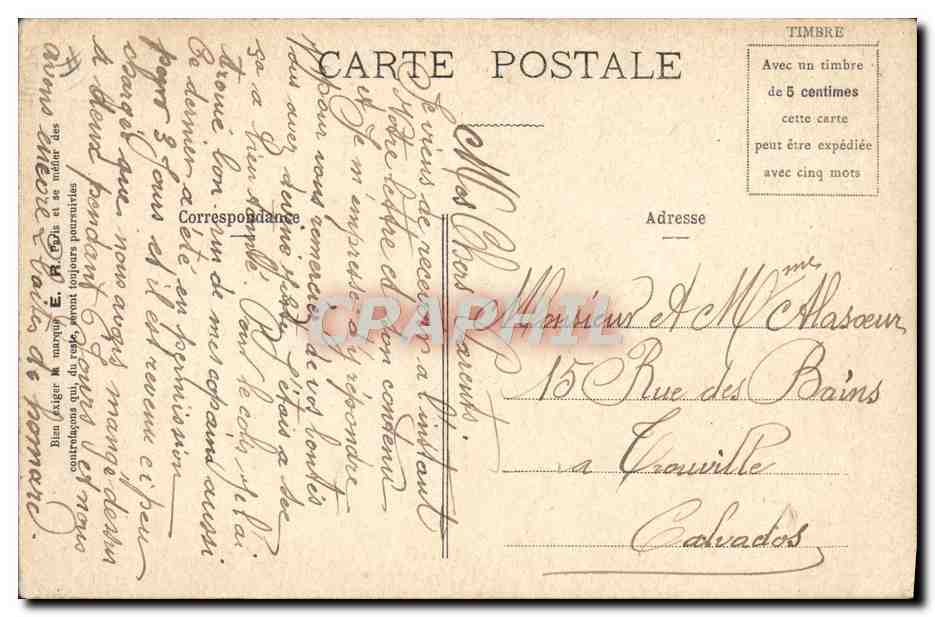 CARTE POSTALE
TIMBRE
Avec un timbre
de 5 centimes
cette carte
peut être expédiée
avec cinq mots
Correspondance
Adresse
Monsieur A Mme Alasœur
15 Rue des Bains
a Trouville
Calvados
Mes Chers Parents.
Je viens de recevoir a l'instant
Votre lettre et bon contenu
et Je m'empresse d'y répondre
pour vous remercier de vos bontés
vous avez deviné juste J'étais a sec
ça a bien tombé. Pour le colis je l'ai
trouvé bon rien de mes copains aussi
Ce dernier a été en permission
3 Jours et il est revenu un peu
chargé que nous avons mangé dessus
a deux pendant Jours et nous
avons encore 2 boites de homard.
Bien exiger la marque E. R. Paris et se méfier des
contrefaçons qui, du reste, seront toujours poursuivies
CPAPHIL